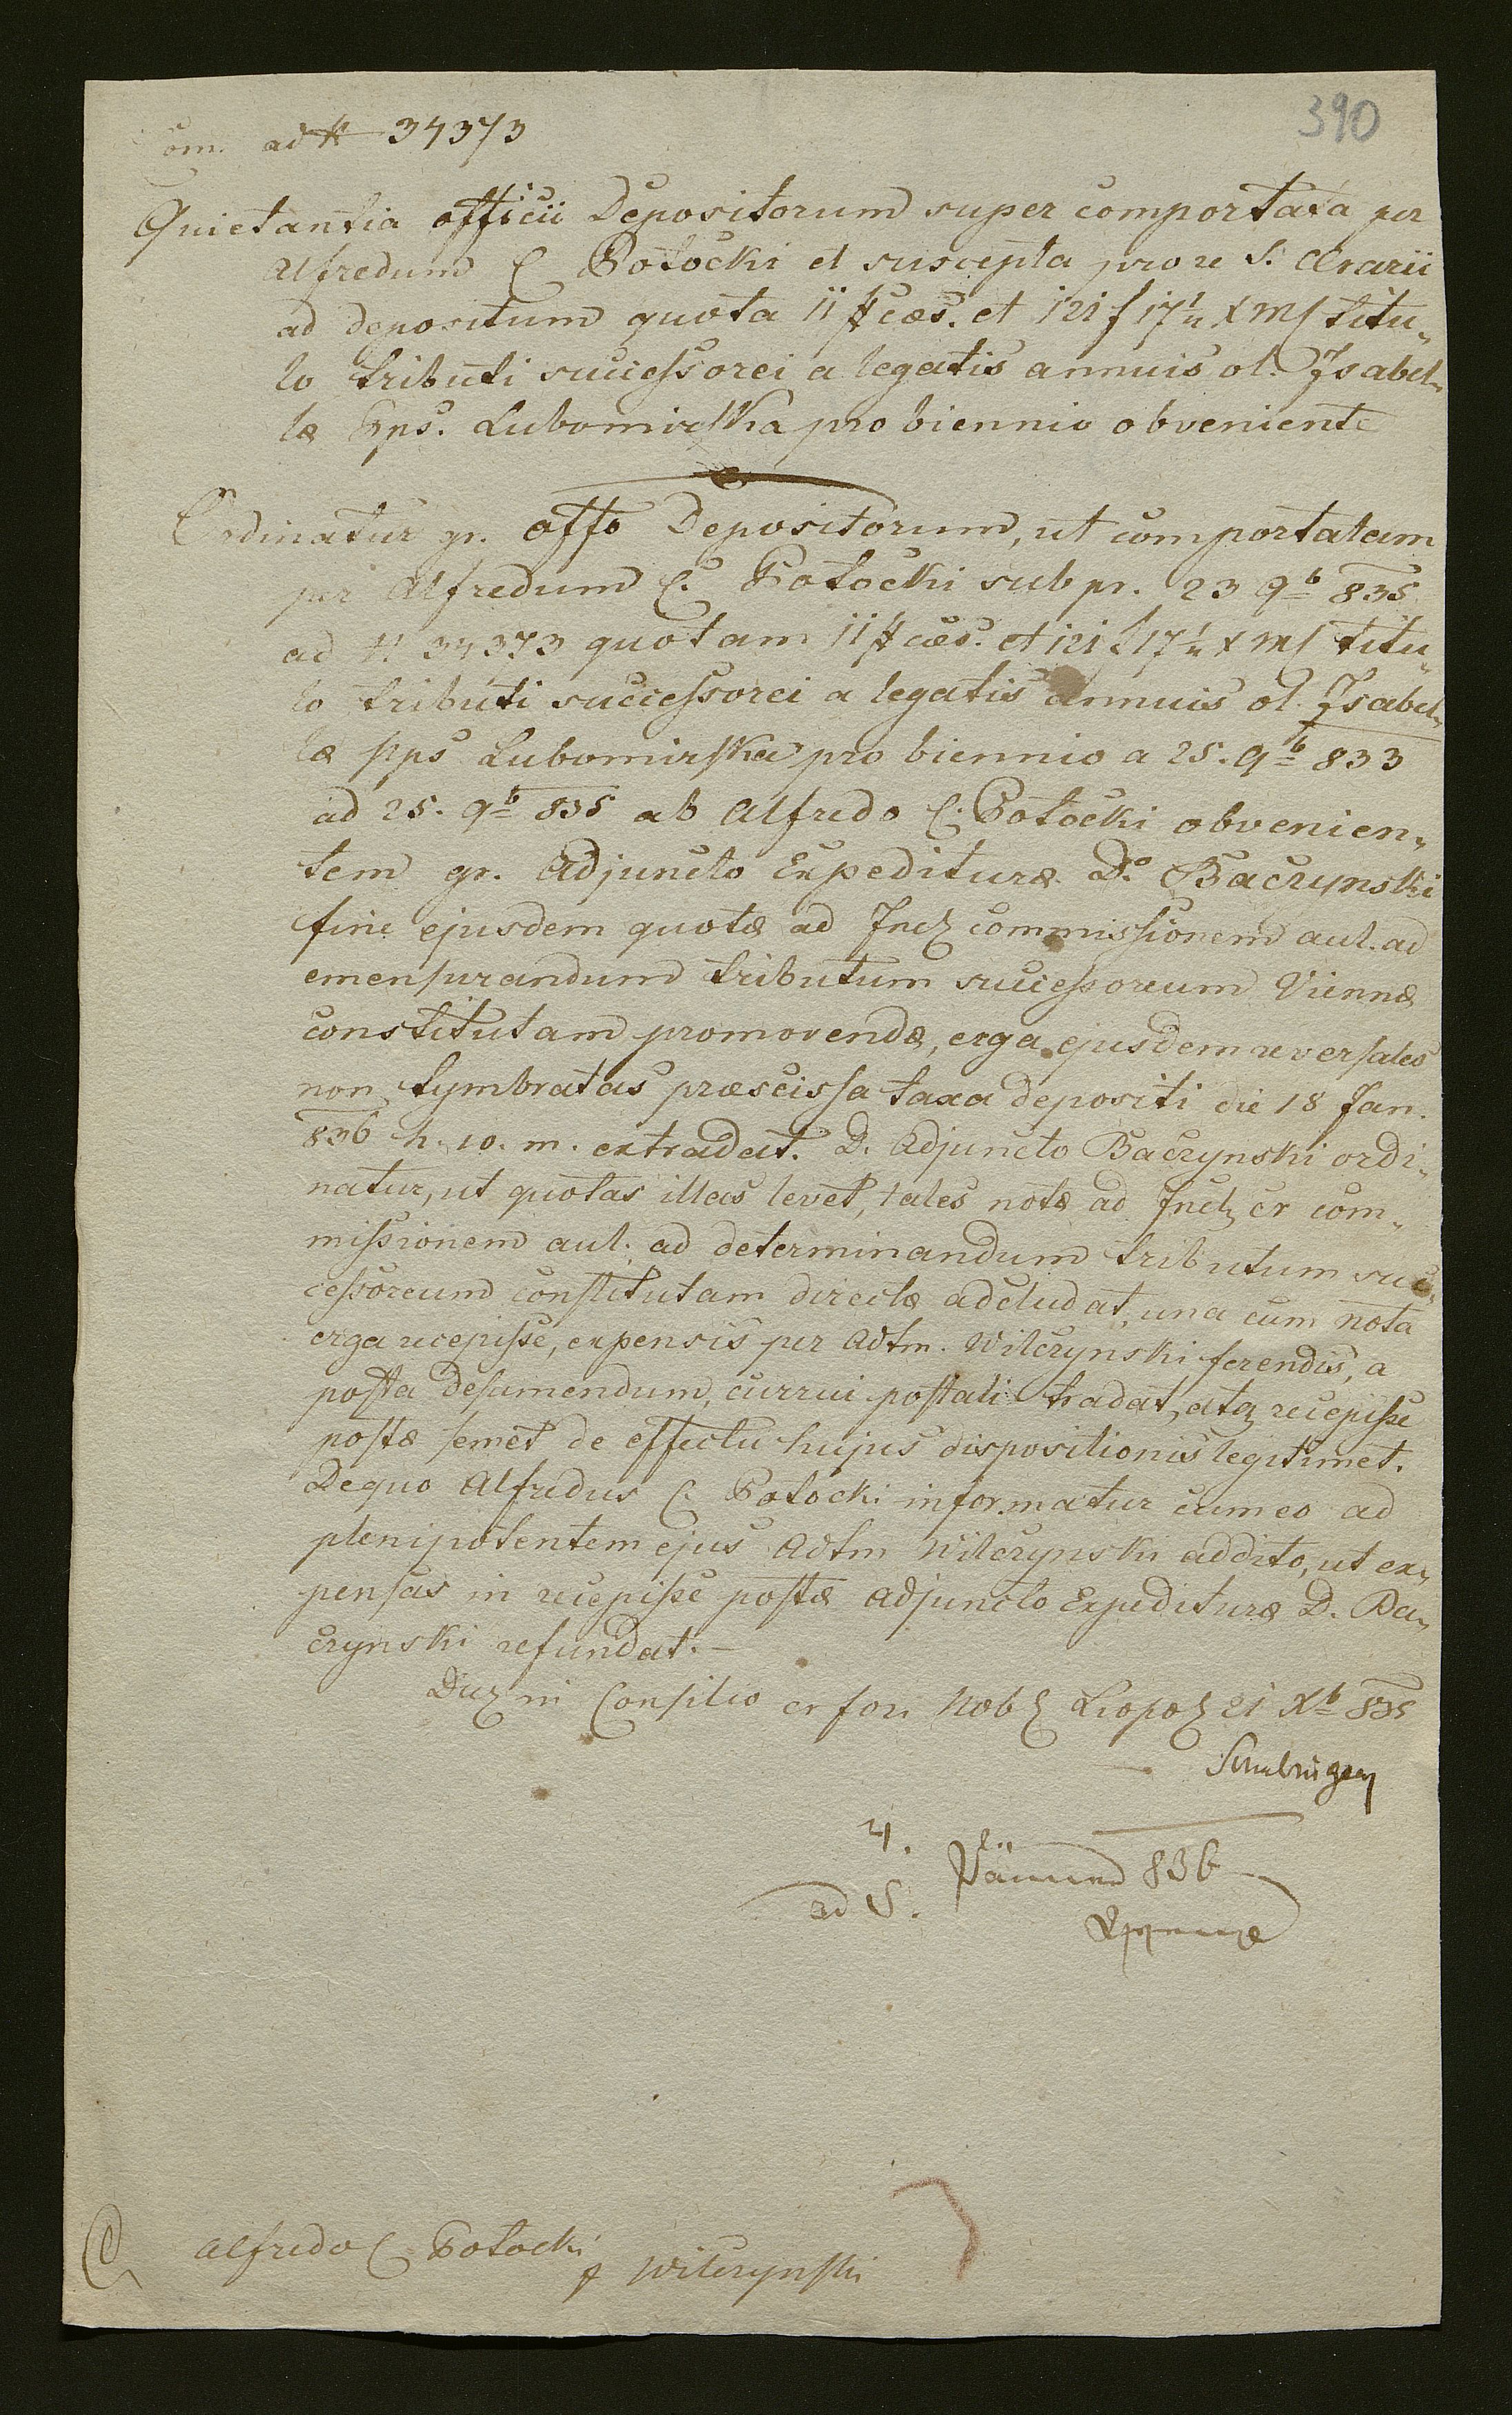 390
om. ad # 34373
Quietantia officii Depositorum super comportata per
Alfredum C Potocki et suscepta pro re S. Aerarii
ad depositum quota 11 # caes. et 121 f 17 1/4 x M/ titu„
lo tributi successorei a legatis annuis ol. Isabel„
lae Pps. Lubomirska pro biennio obveniente
Ordinatur gr. Offo Depositorum, ut comportatam
per Alfredum C. Potocki sub pr. 23 9b 835
ad N. 34373 quotam 11 # caes. et 121 f 17 1/4 x M/ titu„
lo tributi successorei a legatis annuis ol. Isabel„
lae pps Lubomirska pro biennio a 25. 9b 833
ad 25. 9b 835 ab Alfredo C. Potocki obvenien„
tem gr. Adjuncto Expediturae Do. Baczynski
fine ejusdem quotae ad Incl commissionem aul. ad
emensurandum tributum successoreum Viennae
constitutam promovendae, erga ejusdem reversales
non tymbratas praescissa taxa depositi die 18 Jan.
836 h. 10. m. extradat. D. Adjuncto Baczynski ordi„
natur, ut quotas illas levet, tales notae ad Incl cr com„
missionem aul. ad determinandum tributum suc„
cessoreum constitutam directae adcludat, una cum nota
erga recepisse, expensis per Adtm. Wilczynski ferendis, a
posta desumendum, currui postali tradat, atq recepisse
postae semet de effectu hujus dispositionis legitimet.
De quo Alfredus C. Potocki informatur cum eo ad
plenipotentem ejus Adtm Wilczynski addito, ut ex„
pensas in recepisse postae Adjuncto Expediturae D. Ba„
czynski refundat. –
in Consilio cr fori Nob Leopo 21 Xb 835
4.
ad 5. 836
Alfredo C Potocki
Wilczynski